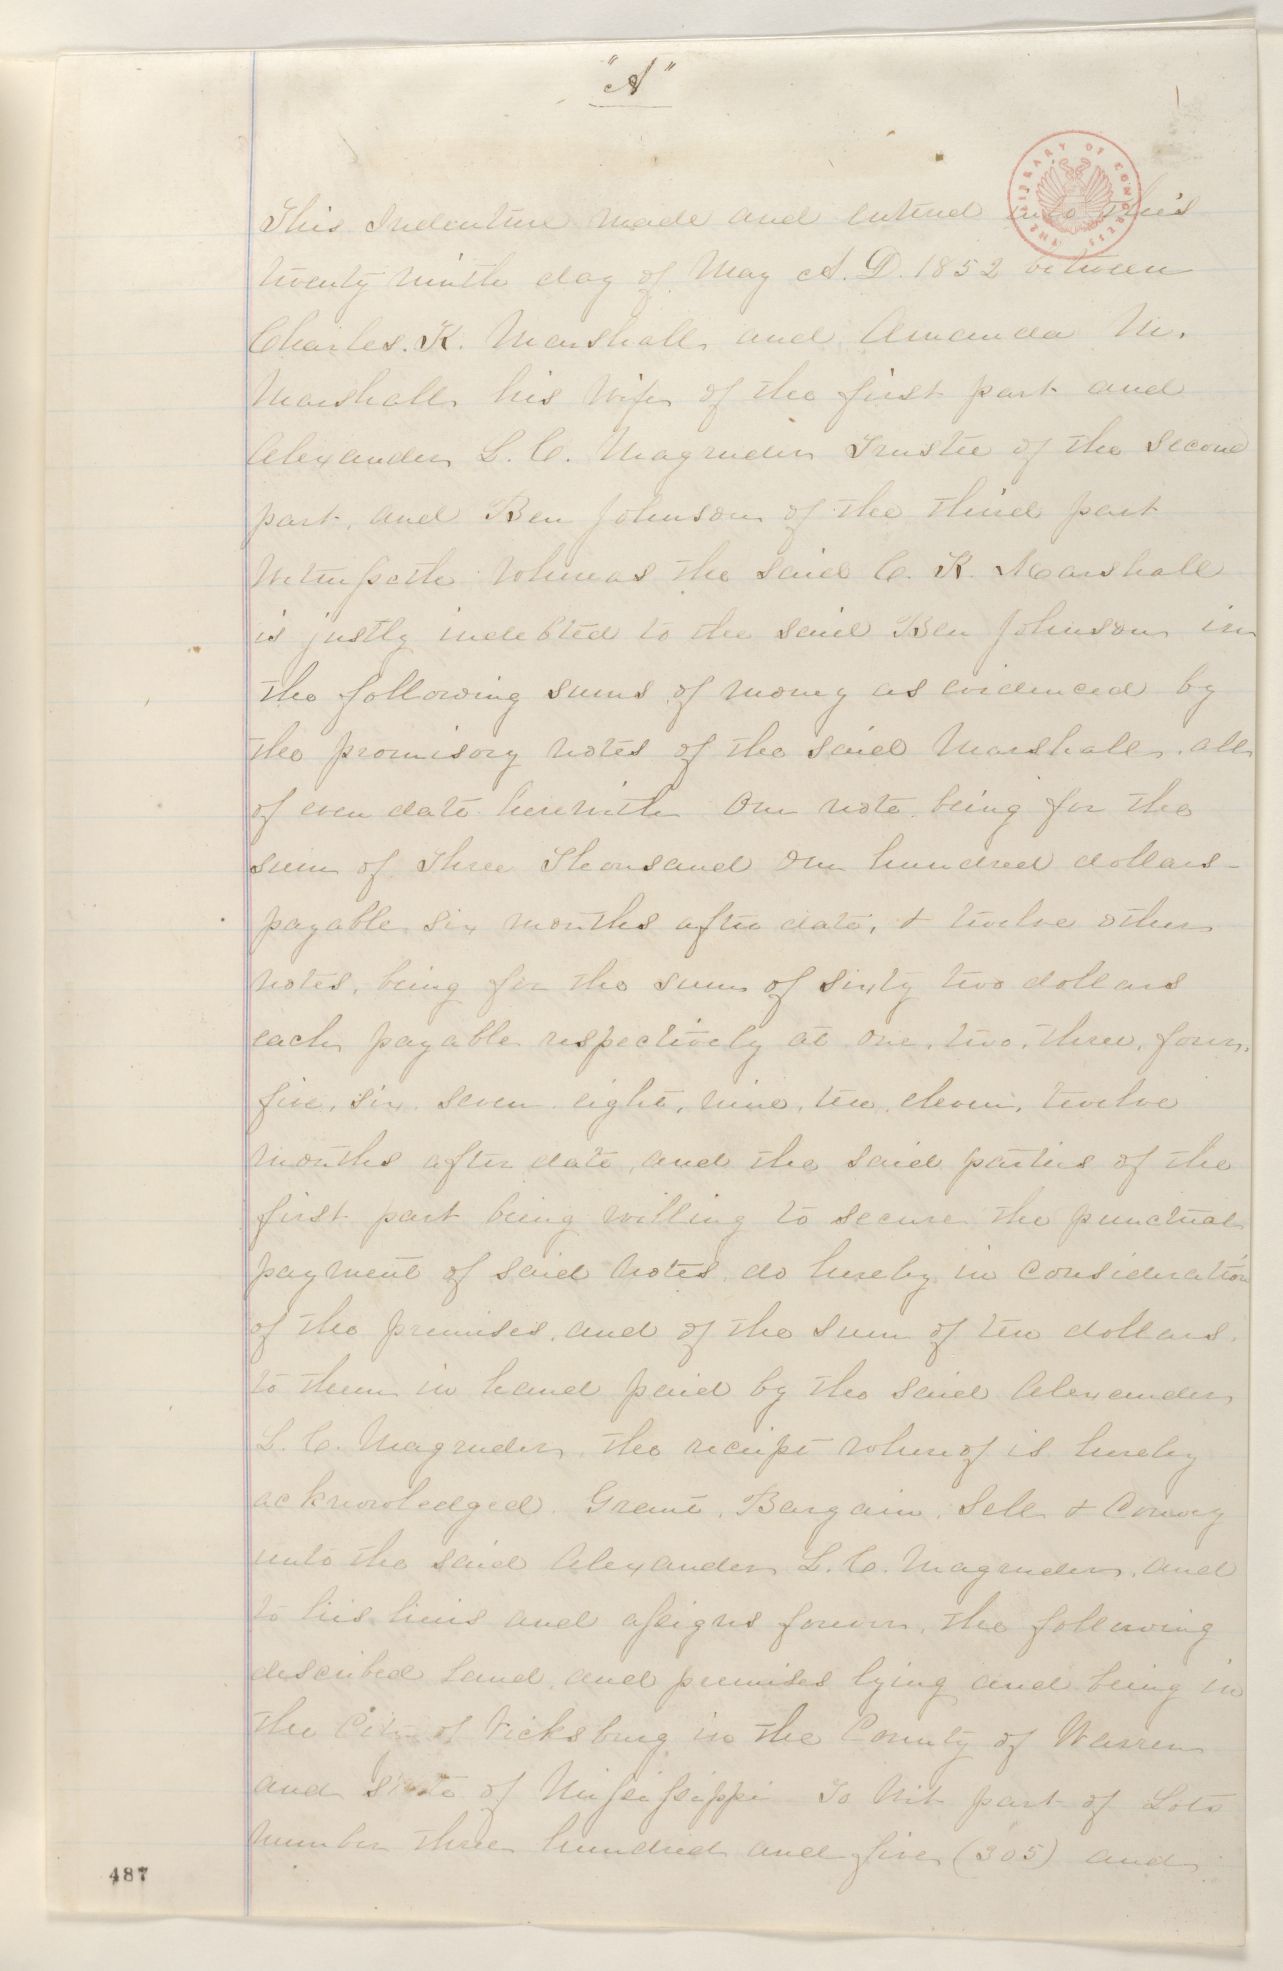 "A"
THE LIBRARY OF CONGRESS
This Indenture made and entered into this
twenty ninth day of May A. D. 1852 between
Charles. K. Marshall and Amanda M.
Marshall his wife of the first part and
Alexander L. C. Magruder Trustee of the second
part, and Ben Johnson of the third part
Witnesseth Whereas the said C. K. Marshall
is justly indebted to the said Ben Johnson in
the following sums of money as evidenced by
the promisory notes of the said Marshall. all
of even date herewith One note being for the
sum of Three Thousand One hundred dollars-
payable six months after date, & twelve other
notes, being for the sum of sixty two dollars
each payable respectively at one, two, three, four,
five, six. seven. eight, nine, ten, eleven, twelve
months after date, and the said parties of the
first part being willing to secure the punctual
payment of said notes, do hereby in consideration
of the premises, and of the sum of ten dollars.
to them in hand paid by the said Alexander
L. C. Magruder, the receipt whereof is hereby
acknowledged. Grant, Bargain, Sell & Convey
unto the said Alexander L. C. Magruder, and
to his heirs and assigns forever, the following
described land, and premises lying and being in
the City of Vicksburg in the County of Warren
and state of Mississippi To Wit part of Lots
number three hundred and five (305) and
487